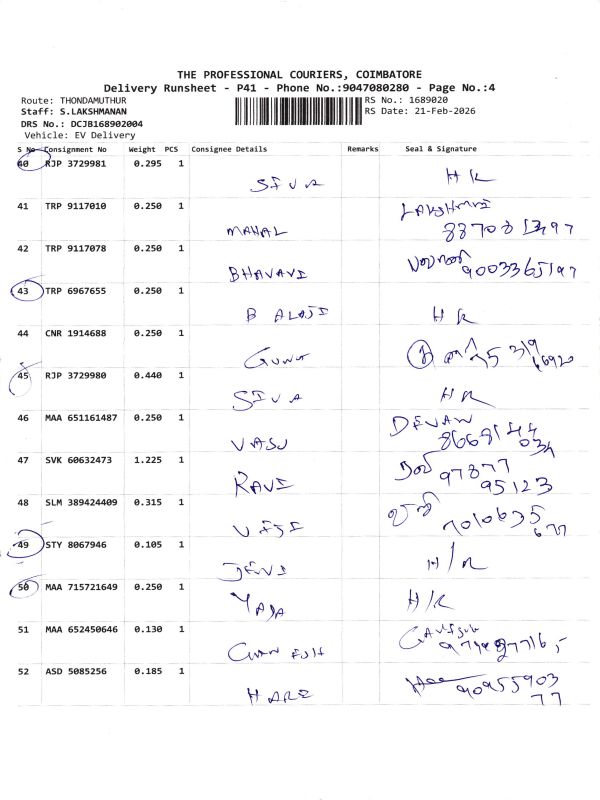 THE PROFESSIONAL COURIERS, COIMBATORE
Delivery Runsheet - P41 - Phone No.:9047080280 - Page No.:4
Route: THONDAMUTHUR
RS No.: 1689020
Staff: S.LAKSHMANAN
RS Date: 21-Feb-2026
DRS No.: DCJB168902004
Vehicle: EV Delivery
S No Consignment No Weight PCS Consignee Details Remarks Seal & Signature
40 RJP 3729981 0.295 1
SIVA HR
41 TRP 9117010 0.250 1 LAKSHMI
MAHAL
42 TRP 9117078 0.250 1
BHAVAVI 9003365197
43 TRP 6967655 0.250 1
BALAJI HR
44 CNR 1914688 0.250 1
GUNA
45 RJP 3729980 0.440 1
SIVA HR
46 MAA 651161487 0.250 1 DEVAN
VASU
47 SVK 60632473 1.225 1 97877
RAVI 95123
48 SLM 389424409 0.315 1
VIJI 7010635
677
49 STY 8067946 0.105 1
DEVI H/R
50 MAA 715721649 0.250 1
H/R
51 MAA 652450646 0.130 1
52 ASD 5085256 0.185 1
HARE 90955903
77